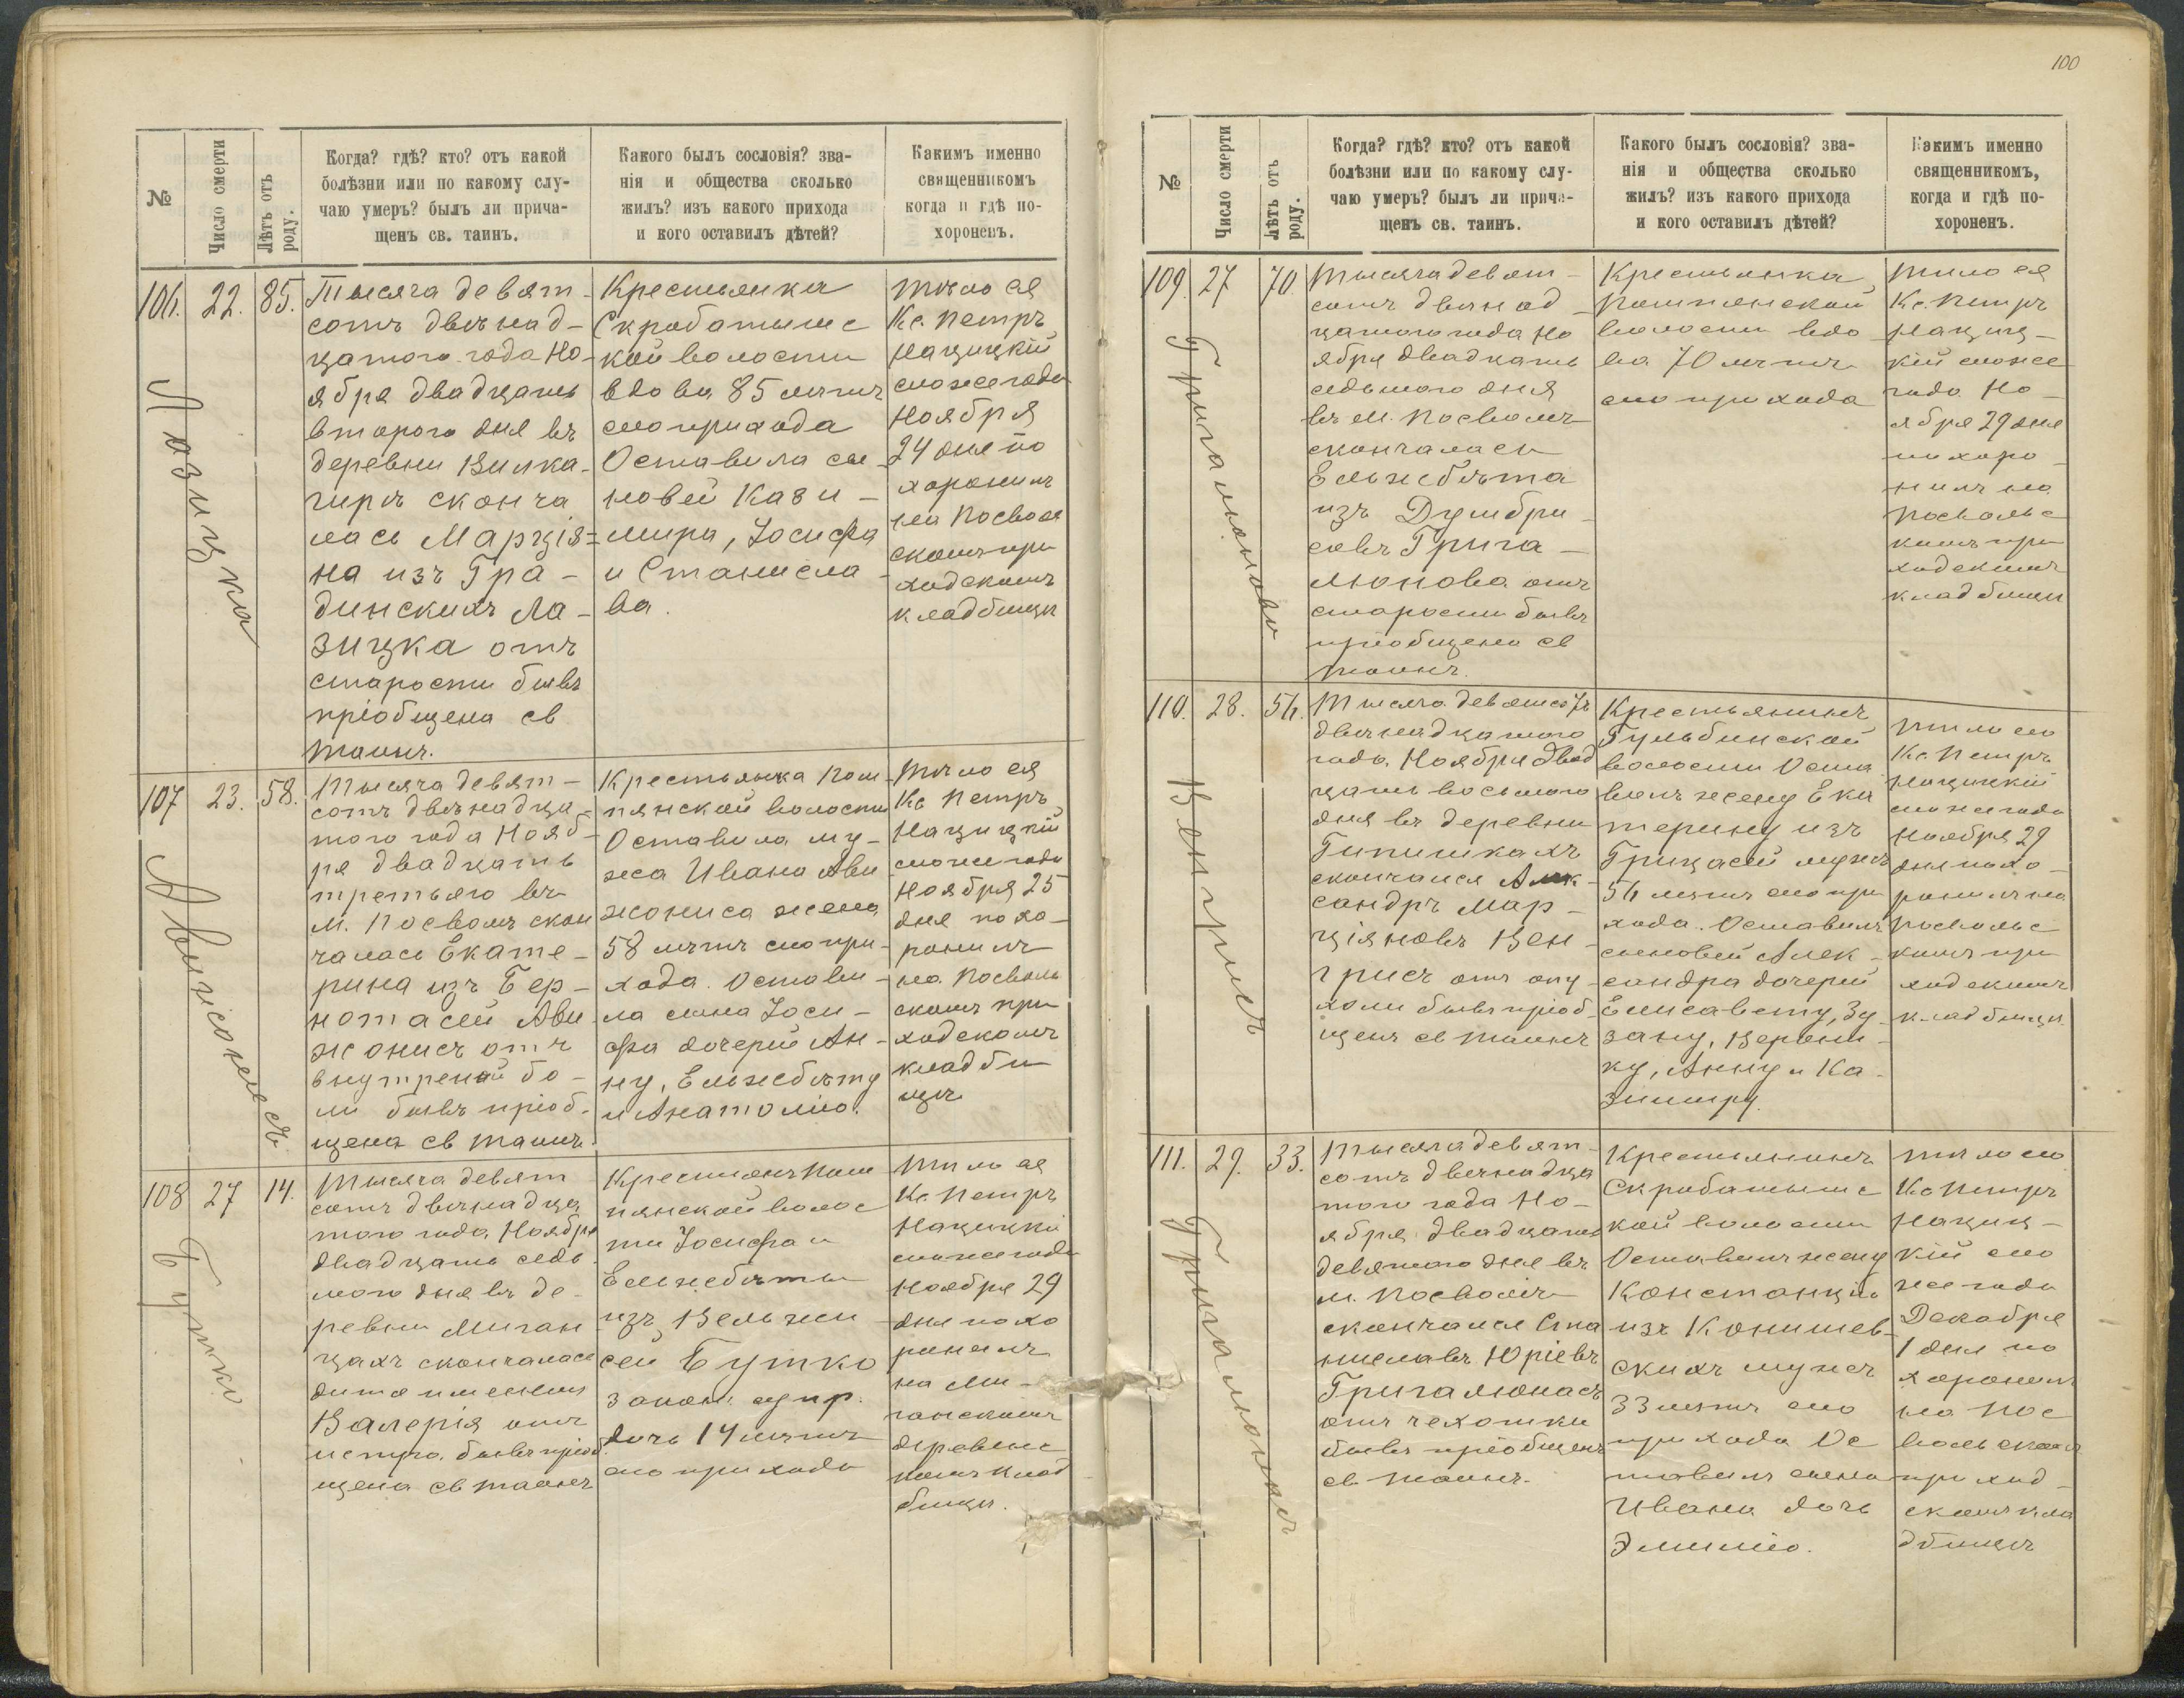 100
№
Число смерти
Лѣтъ отъ
роду.
Когда? гдѣ? кто? отъ какой
болѣзни или по какому слу-
чаю умеръ? былъ ли прича-
щенъ св. таинъ.
Какого былъ сословія? зва-
нія и общества сколько
жилъ? изъ какого прихода
и кого оставилъ дѣтей?
Какимъ именно
священникомъ
когда и гдѣ по-
хороненъ.
106.
22.
85.
Лазицка
Тысяча девят-
сотъ двѣнад-
цатого года Но-
ября двадцать
второго дня въ
деревни Вилка-
гирѣ сконча
лась Марція=
на изъ Гра-
динскихъ Ла-
зицка отъ
старости бывъ
пріобщена св
таинъ.
Крестьянка
Скробатышс
кой волости
вдова 85 лѣтъ
сего прихода
Оставила сы-
новей Кази-
мира, Іосифа
и Станисла-
ва.
Тѣло ея
Кс. Петръ
Нацицкій
сего же года
Ноября
24 дня по
хоронилъ
на Посволь
скомъ при
ходскомъ
кладбищи
107
23.
58.
Авижонисъ
Тысяча девят-
сотъ двѣнадца-
того года Нояб-
ря двадцать
третьяго въ
м. Посволѣ скон
чалась Екате-
рина изъ Бер-
нотасей Ави
жонисъ отъ
внутреной бо-
ли бывъ пріоб-
щена св таинъ.
Крестьянка Пом-
пянской волости
Оставила му-
жа Ивана Ави
жониса жена
58 лѣтъ сего при-
хода. Остави-
ла сына Іоси-
фа дочерей Ан-
ну, Ельжбѣту
и Анатолію.
Тѣло ея
Кс Петръ
Нацицкій
сего же года
Ноября 25
дня похо-
ронилъ
на Посволь
скомъ при
ходскомъ
кладби
щѣ
108
27
14.
Бутко
Тысяча девят
сотъ двѣнадца
того года, Ноября
двадцать седь
мого дня въ де-
ревни Миган
цахъ скончалась
дитя именем
Валерія отъ
бывъ пріоб
щена св таинъ
Крестьянъ Пом
пянской волос
ти Іосифа и
Ельжбѣты
изъ Вельжи
сей Бутко
закон. супр.
дочь 14 лѣтъ
сего прихода
Тѣло ея
Кс. Петръ
Нацицкій
сего же года
Ноября 29
дня похо
ронилъ
на Ми-
ганскомъ
деревенс
комъ клад
бищи.
№
Число смерти
Лѣтъ отъ
роду.
Когда? гдѣ? кто? отъ какой
болѣзни или по какому слу-
чаю умеръ? былъ ли прича-
щенъ св. таинъ.
Какого былъ сословія? зва-
нія и общества сколько
жилъ? изъ какого прихода
и кого оставилъ дѣтей?
Какимъ именно
священникомъ,
когда и гдѣ по-
хороненъ.
109.
27
70.
Григалюнова
Тысяча девят-
сотъ двѣнад-
цатого года Но
ября двадцать
седьмого дня
въ м. Посволѣ
скончалась
Ельжбѣта
изъ Думбри-
совъ Грига-
люнова отъ
старости бывъ
пріобщена св
таинъ.
Крестьянка
Помпянской
волости вдо
ва 70 лѣтъ
сего прихода
Тѣло ея
Кс. Петръ
Нациц-
кій сего же
года Но-
ября 29 дня
похоро-
нилъ на
Посвольс
комъ при
ходскомъ
кладбищи
110.
28.
56.
Венгрисъ
Тысяча девятсотъ
двѣнадцатого
года, Ноября двад
цать восьмого
дня въ деревни
Гипишкахъ
скончался Алек-
сандръ Мар-
ціяновъ Вен-
грисъ отъ опу-
холи бывъ пріоб-
щенъ св таинъ
Крестьянинъ
Гульбинской
волости Оста
вилъ жену Ека
терину изъ
Грицасей мужъ
56 лѣтъ сего при
хода. Оставилъ
сыновей Алек-
сандра дочерей
Елисавету, Зу-
зану, Верони-
ку, Анну и Ка-
зимиру.
Тѣло его
Кс. Петръ
Нацицкій
сего же года
Ноября 29
дня похо-
ронилъ на
Посвольс
комъ при
ходскомъ
кладбищи.
111.
29.
33.
Григалюнасъ
Тысяча девят-
сотъ двѣнадца
того года Но-
ября двадцать
девятого дня въ
м. Посволѣ
скончался Ста
ниславъ Юріевъ
Григалюнасъ
отъ чехотки
бывъ пріобщенъ
св таинъ.
Крестьянинъ
Скробатышс
кой волости
Оставилъ жену
Констанцію
изъ Конишев-
скихъ мужъ
33 лѣтъ сего
прихода Ос
тавилъ сына
Ивана дочь
Эмилію.
Тѣло его
Кс Петръ
Нациц-
кій сего
же года
Декабря
1 дня по
хоронилъ
на Пос
вольскомъ
приход-
скомъ кла
дбищѣ